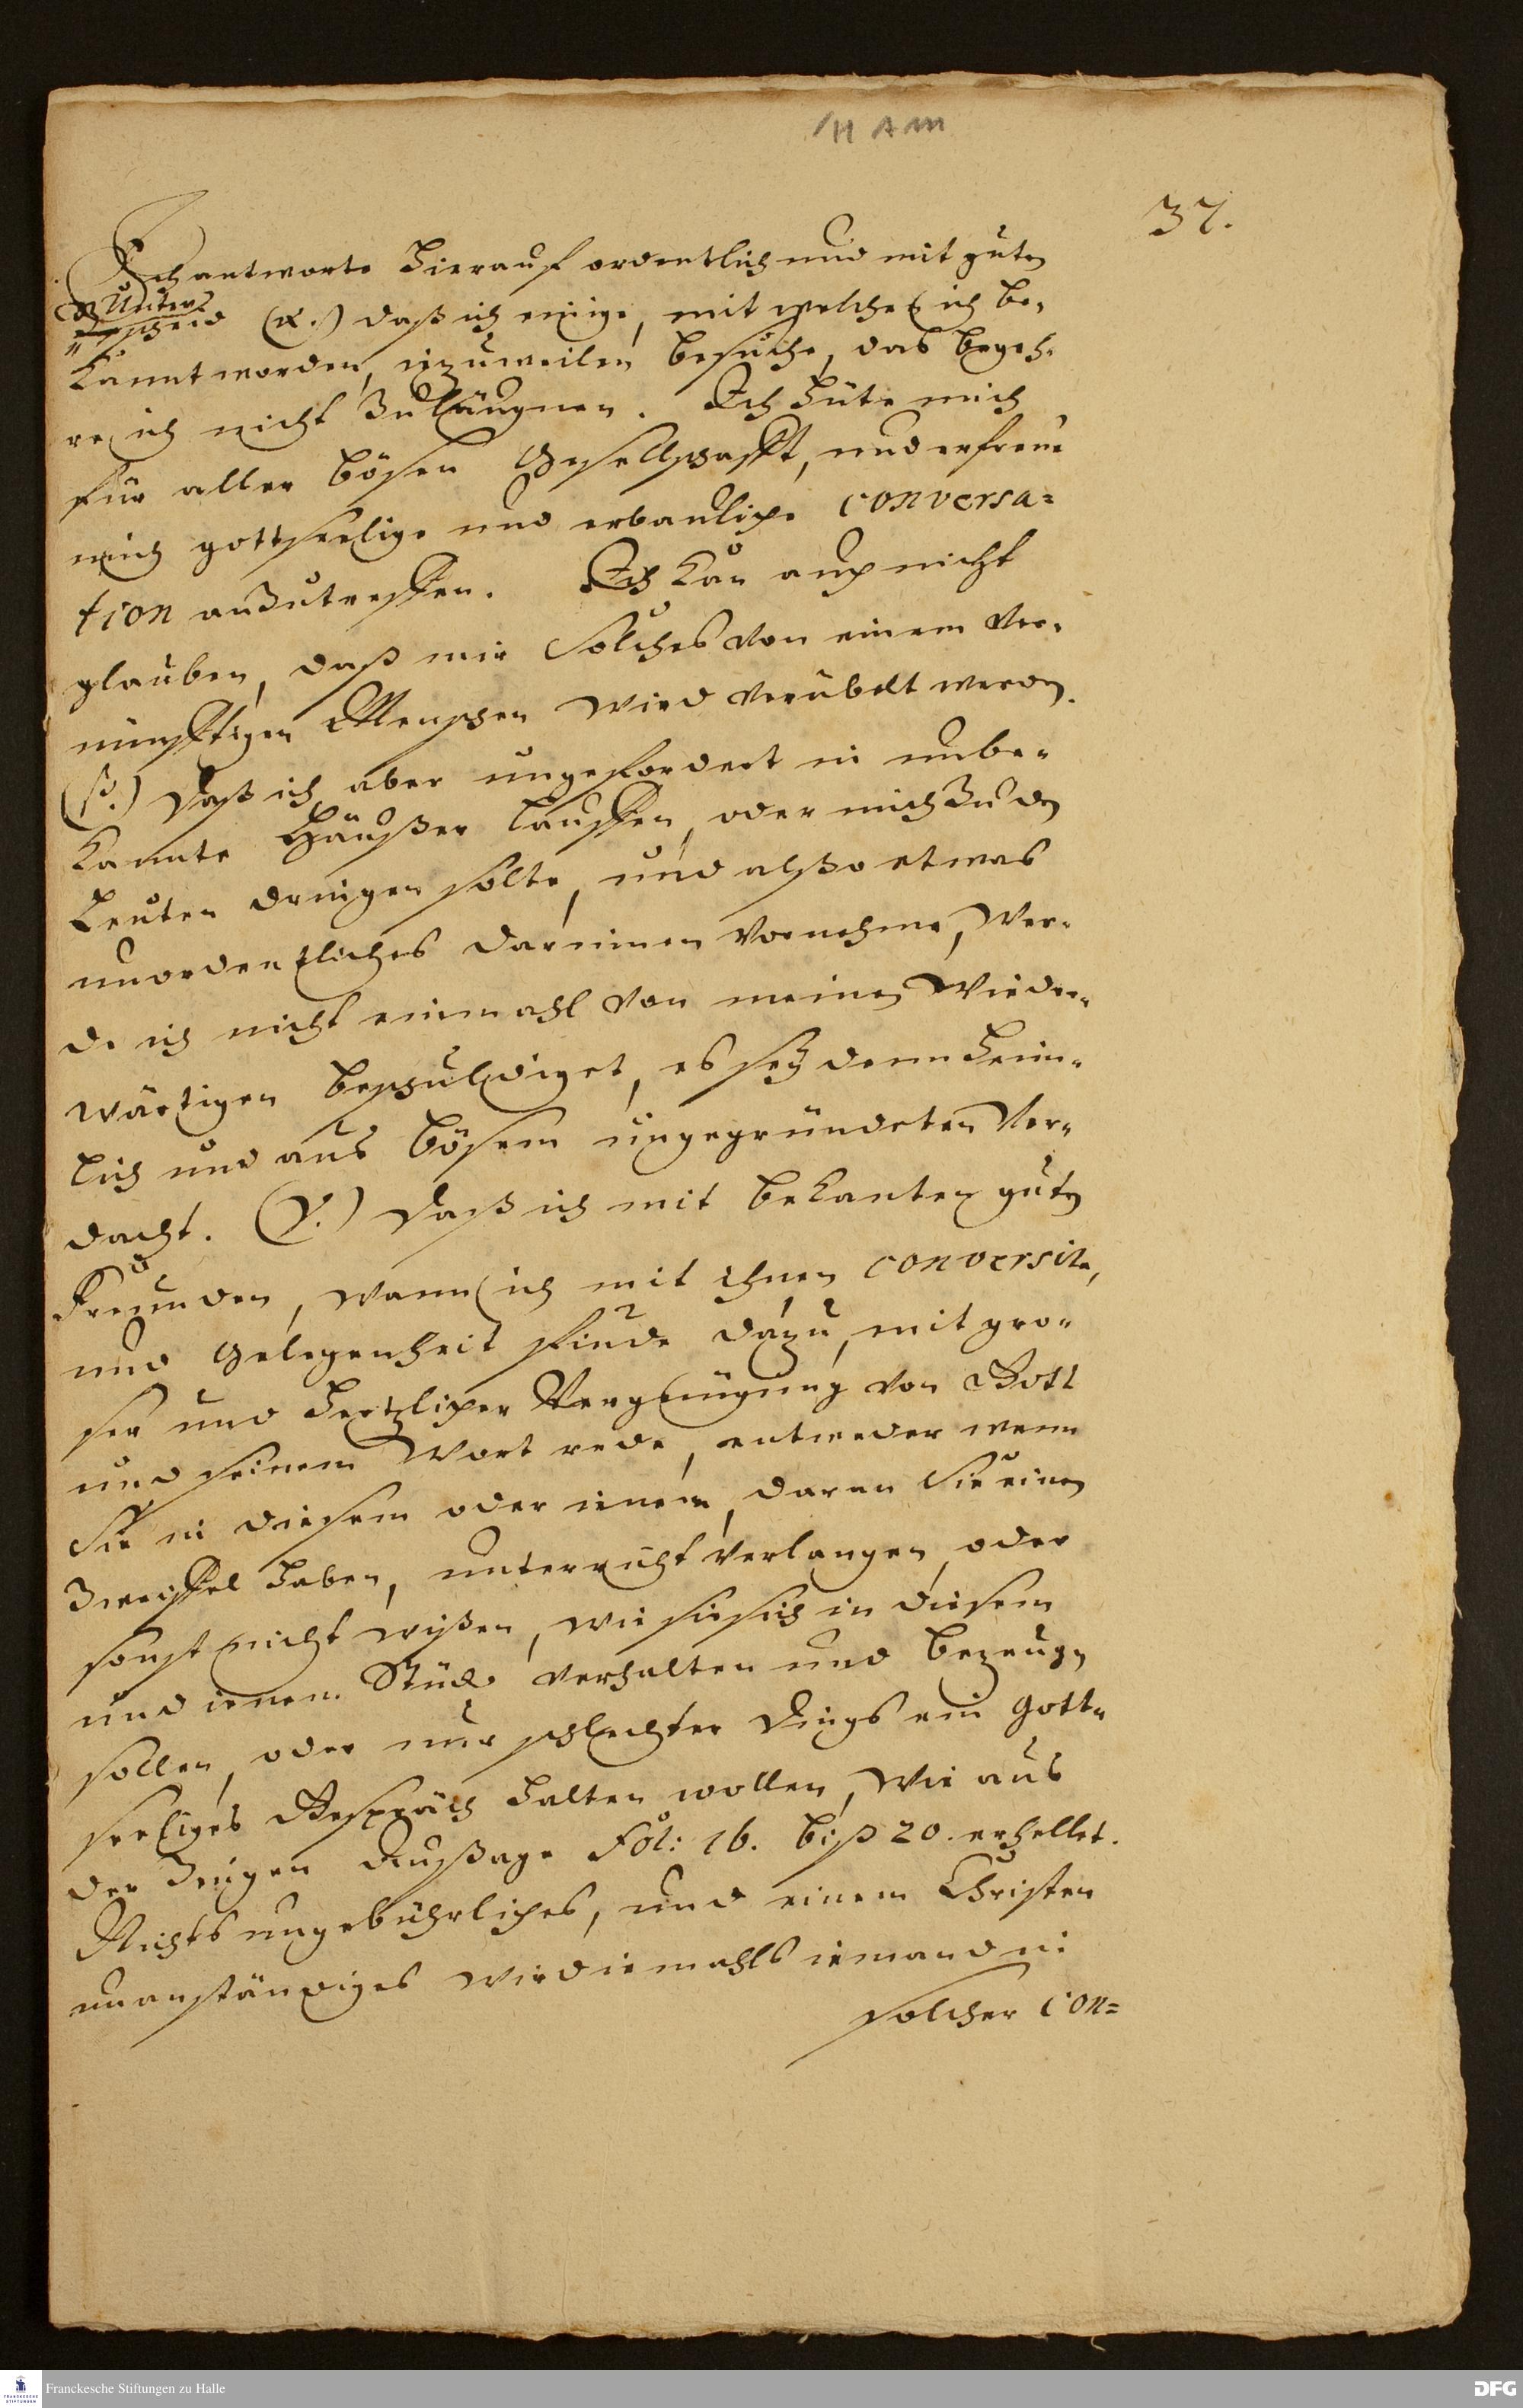 37.
Ich antworte hierauf ordentlich und mit guten
Unter=
scheid (α.) daß ich einige, mit welchen ich be-
kannt worden, inzuweilen besuche, das begeh-
re ich nicht zu läugnen. Ich hüte mich
für aller bösen Gesellschafft, und erfreue
mich gottseelige und erbauliche conversa=
tion anzutreffen. Ich kan auch nicht
glauben, daß mir solches von einem ver-
nünfftigen Menschen wird verübelt werden.
(β.) Daß ich aber ungefordert in unbe-
kannte Häußer lauffen, oder mich zu den
Leuten dringen solte, und also etwas
unordentliches darinnen vornehme, wer-
de ich nicht einmahl von meinen Wieder-
wärtigen beschuldiget, es sey denn heim-
lich und aus bösem ungegründeten Ver-
dacht. (γ.) Daß ich mit bekanten guten
Freunden, wann ich mit ihnen conversire,
und Gelegenheit finde dazu, mit gro-
ser und hertzlicher Vergnügung von Gott
und seinem Wort rede, entweder wenn
Sie in diesem oder jenem, daran Sie einen
Zweiffel haben, unterricht verlangen, oder
sonst nicht wißen, wie sie sich in diesem
und jenem Stück verhalten und bezeugen
sollen, oder nur schlechter Dings ein Gott-
seeliges Gespräch halten wollen, wie aus
der Zeugen Außage Fol: 16. biß 20. erhellet.
Nichts ungebührliches, und einem Christen
unanständiges wird jemahls jemand in
solcher con=
Franckesche Stiftungen zu Halle
FRANCKESCHE
STIFTUNGEN
DFG